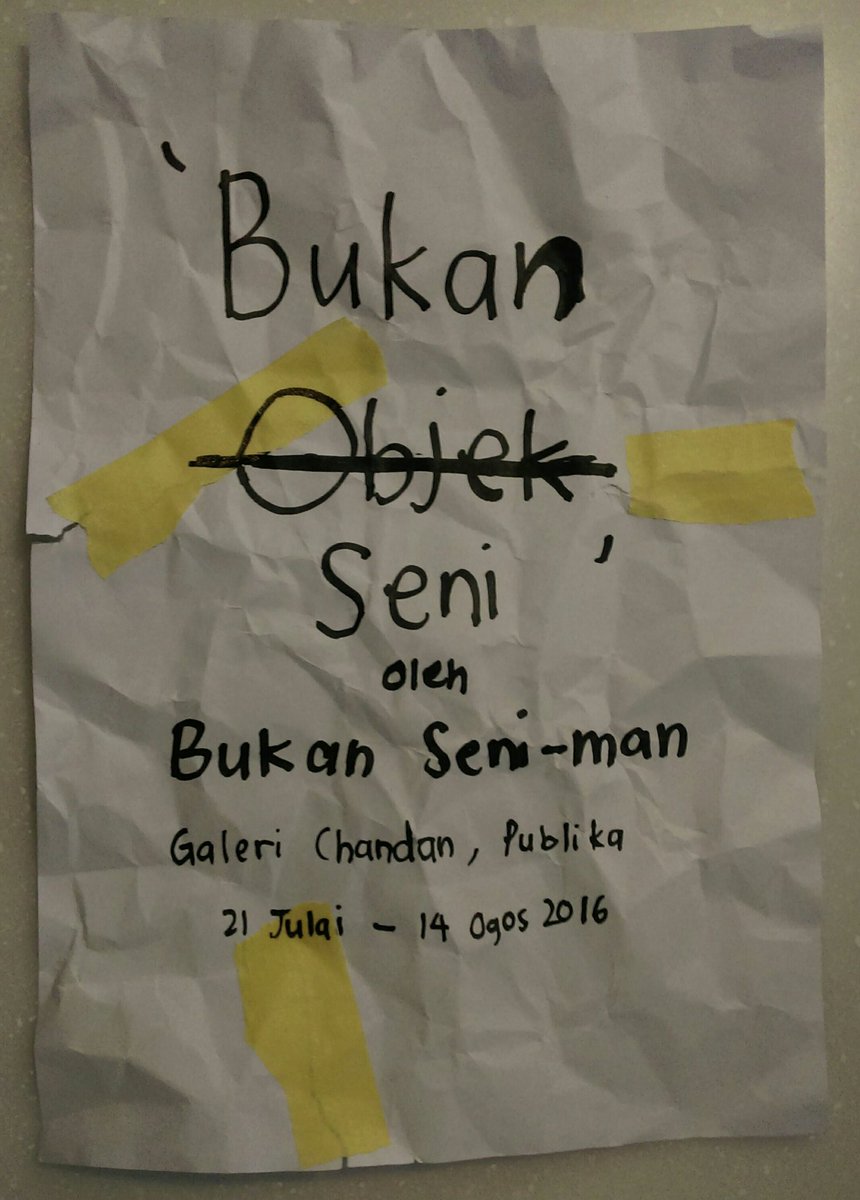 'Bukan
Objek
Seni'
oleh
Bukan Seni-man
Galeri Chandan, Publika
21 Julai - 14 Ogos 2016